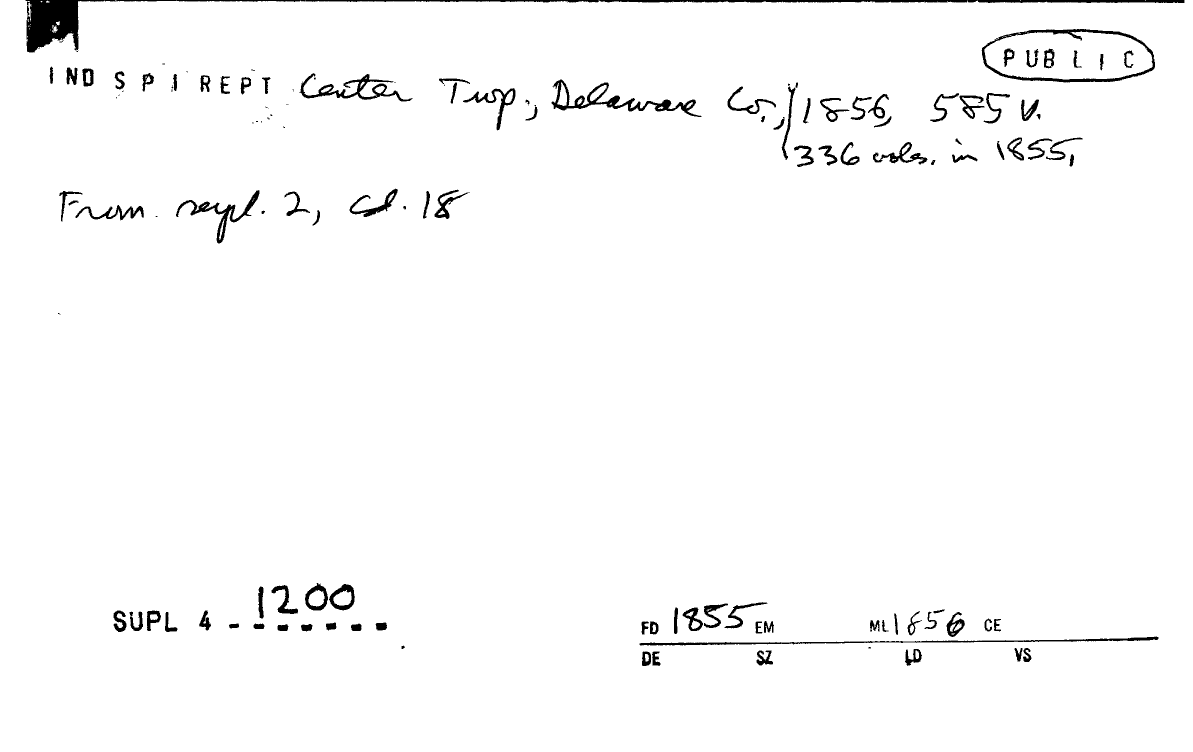 PUBLIC
IND SPI REPT Center Twp., Delaware Co., 1856, 585 v.
336 vols. in 1855,
From suppl. 2, cd. 18
SUPL 4 - 1200
FD 1855 EM ML 1856 CE
DE SZ LD VS